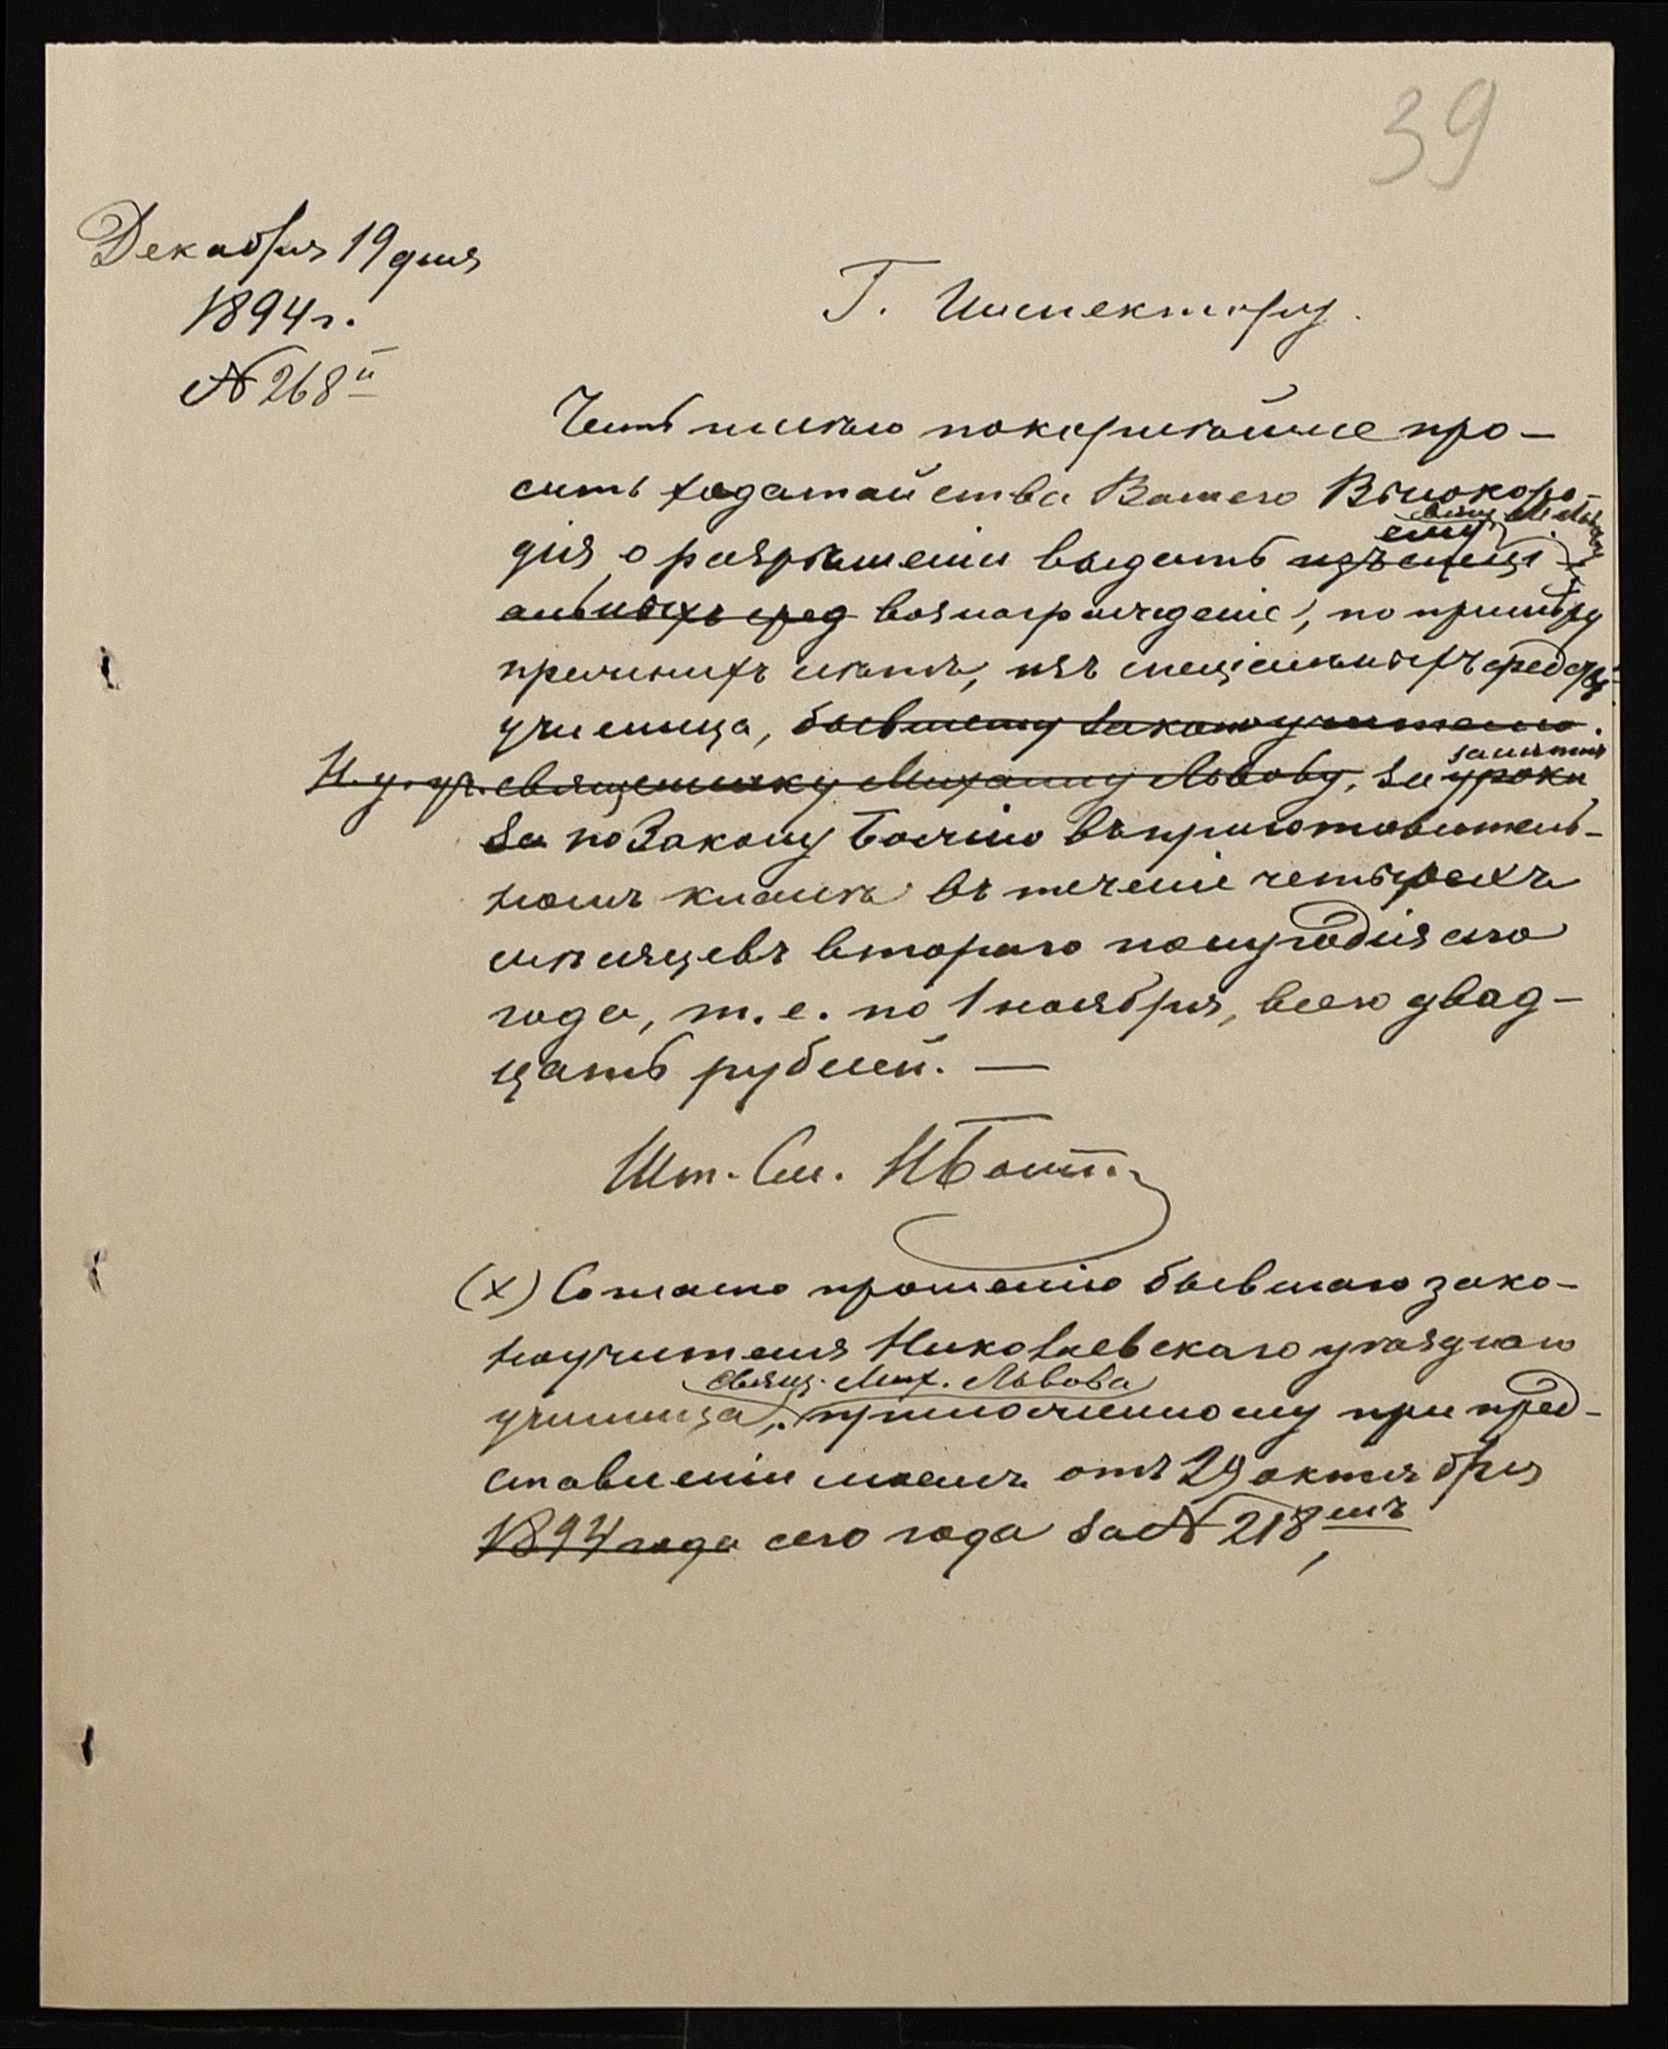 39
Декабря 19 дня
1894 г.
№ 268й
Г. Инспектору.
Честь имѣю покорнѣйше про-
сить ходатайства Вашего Высокоро-
ему
дія о разрѣшеніи выдать изъ специ
альныхъ сред вознагражденіе, по примѣру
прежнихъ лѣтъ, изъ спеціальныхъ средствъ
училища, бывшему законоучителю
занятія
Н. у. уч. священнику Михаилу Львову, за уроки
за по Закону Божію въ приготовитель-
номъ классѣ въ теченіе четырехъ
мѣсяцевъ второго полугодія сего
года, т. е. по 1 ноября, всего двад-
цать рублей. —
Шт. См.
(х) Согласно прошенію бывшаго зако-
ноучителя Николаевскаго уѣзднаго
свящ. Мих. Львова
училища, приложенному при пред-
ставленіи моемъ отъ 29 октября
1894 года сего года за № 218мъ,